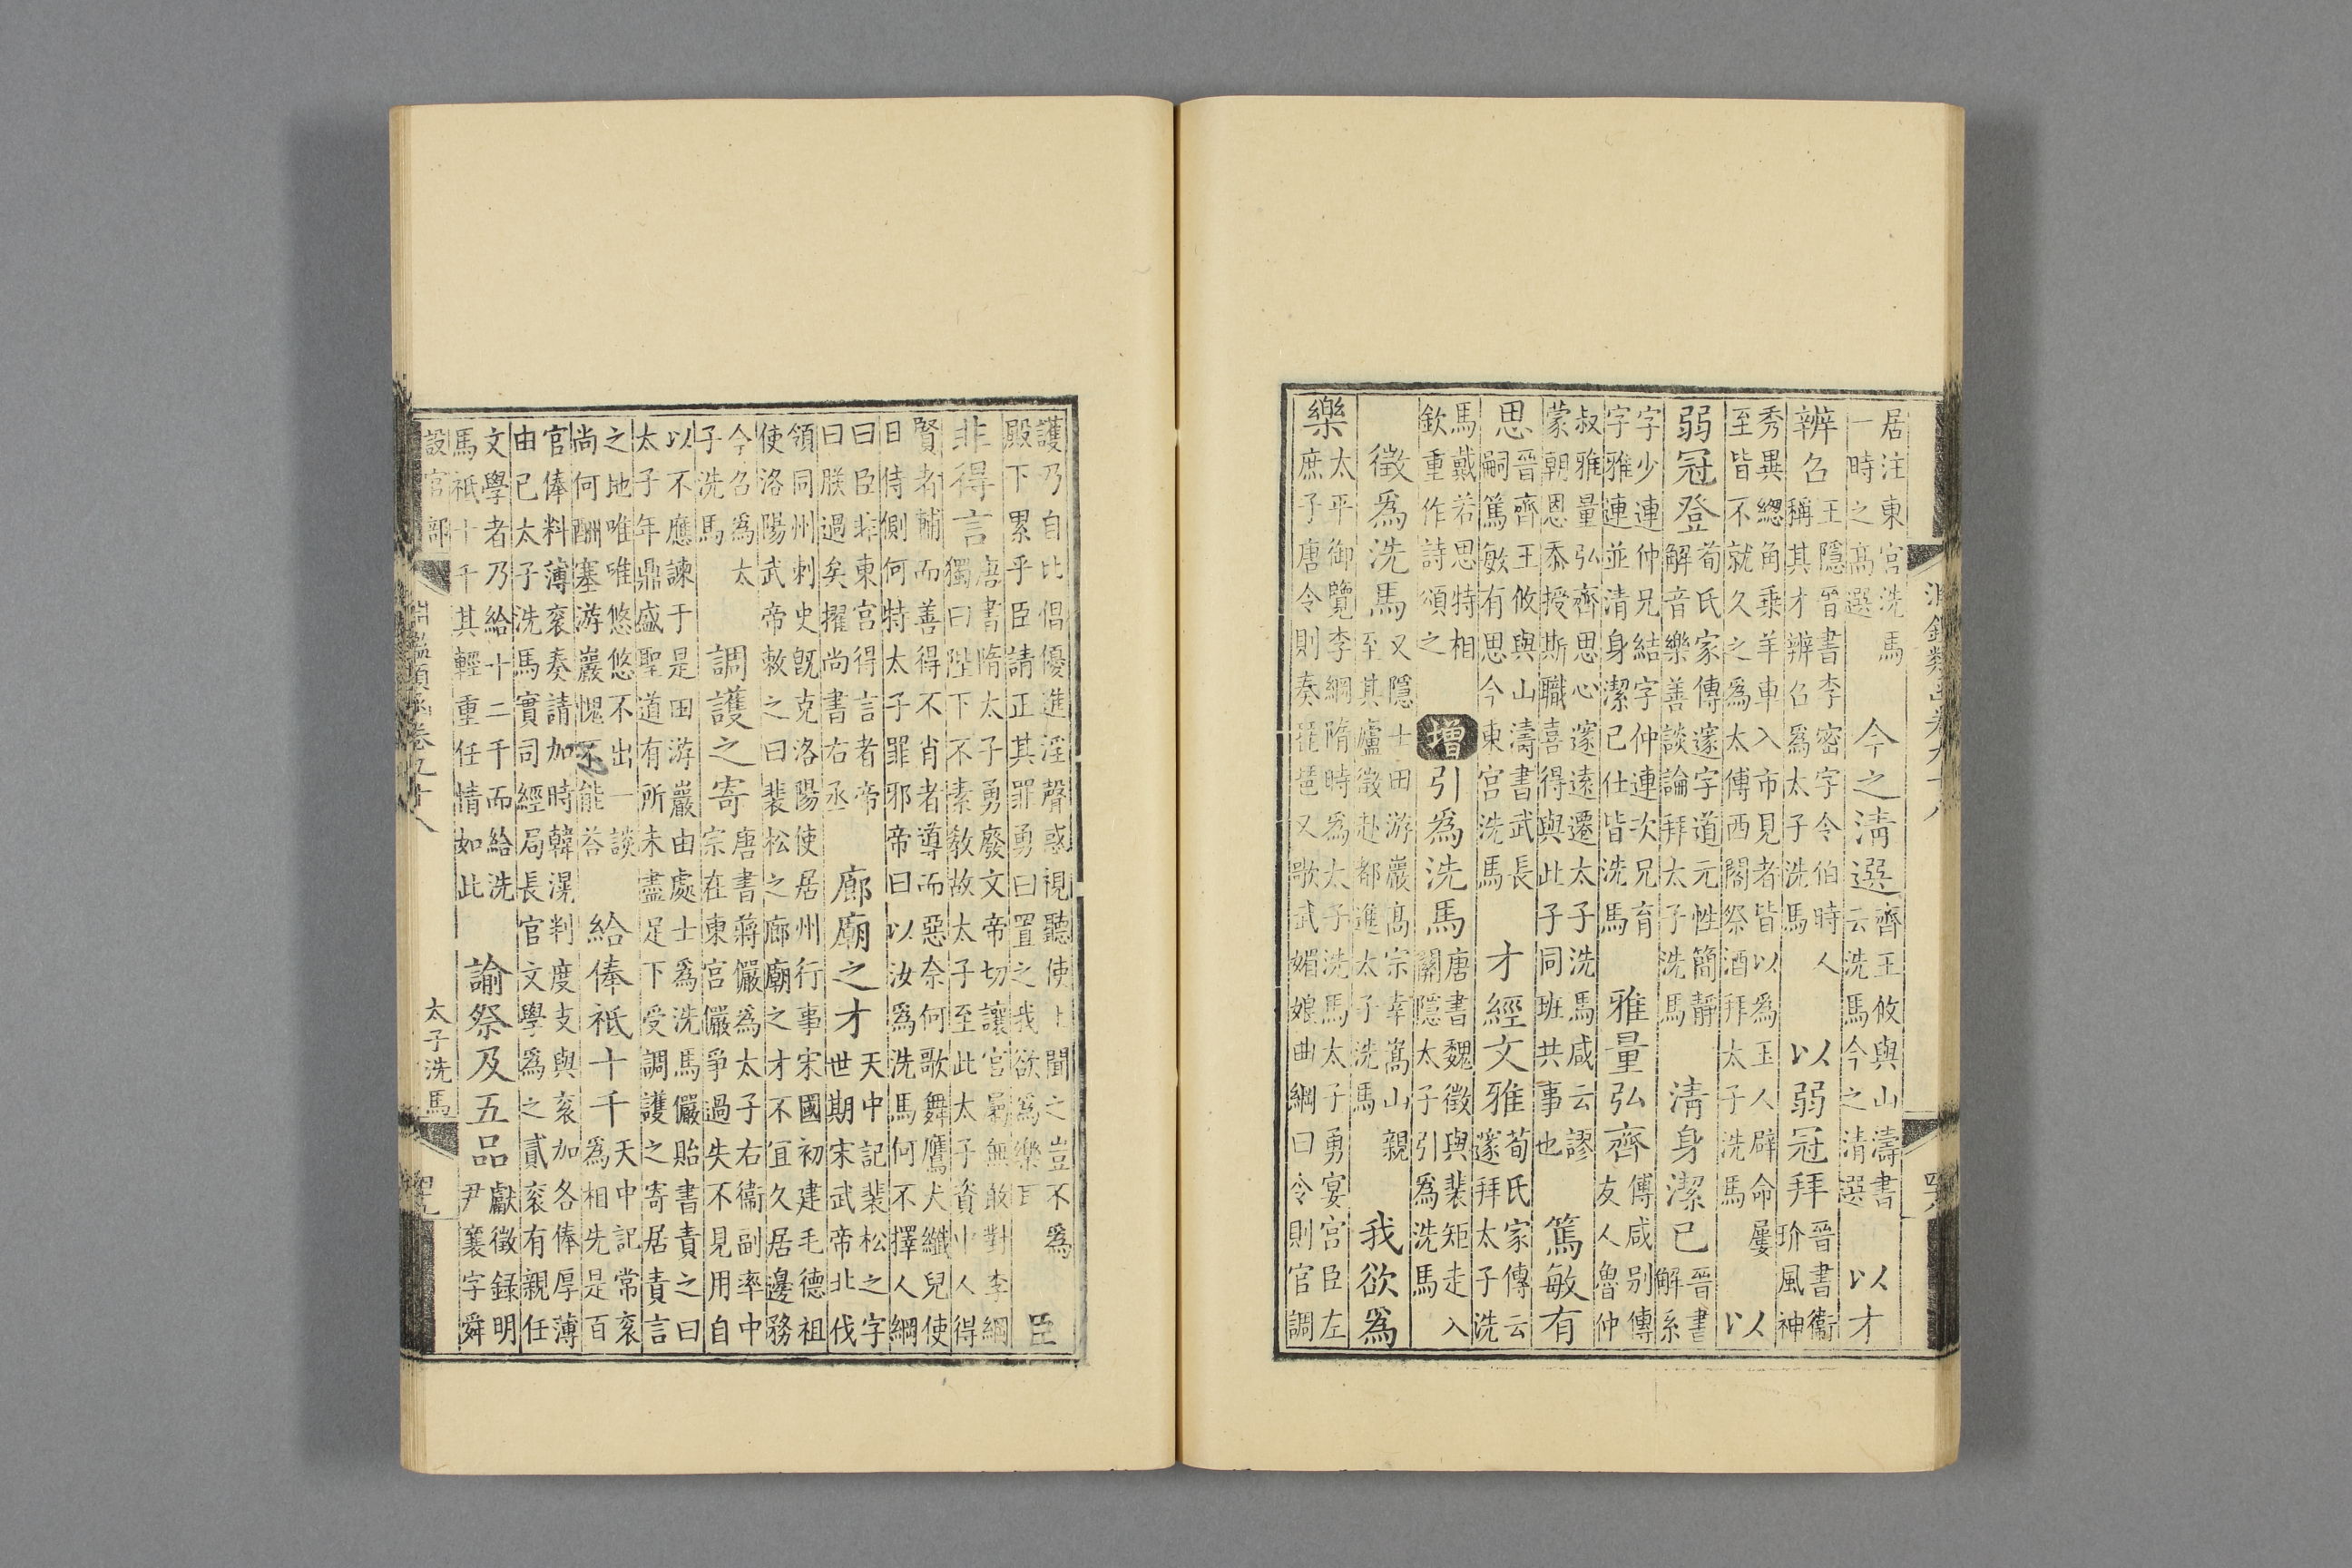 淵鑑類函卷九十八
居注東宮洗馬
一時之髙選
今之淸選
齊王攸與山濤書
云洗馬今之清選
以才
辨召
王隱晉書李密字令伯時人
稱其才辨召爲太子洗馬
以弱冠拜
晉書衞
玠風神
秀異緫角乗羊車入市見者皆以爲玉人辟命屢
至皆不就久之爲太傅西閣祭酒拜太子洗馬
以
弱冠登
荀氏家傳邃字道元性簡靜
解音樂善談論拜太子洗馬
淸身潔已
晉書
解系
字少連仲兄結字仲連次兄育
字雅連並清身潔已仕皆洗馬
雅量弘齊
傅咸别傳
友人魯仲
叔雅量弘齊思心邃遠遷太子洗馬咸云謬
蒙朝恩忝授斯職喜得與此子同班共事也
篤敏有
思
晉齊王攸與山濤書武長
嗣篤敏有思今東宮洗馬
才經文雅
荀氏家傳云
邃拜太子洗
馬戴若思特相
欽重作詩頌之
增
引爲洗馬
唐書魏徵與裴矩走入
關隱太子引爲洗馬
徵爲洗馬
又隱士田游巖髙宗幸嵩山親
至其廬徵赴都進太子洗馬
我欲爲
樂
太平御覽李綱隋時爲太子洗馬太子勇宴宮臣左
庶子唐令則奏琵琶又歌武媚娘曲綱曰令則官調
護乃自比倡優進淫聲惑視聽使上聞之豈不爲
殿下累乎臣請正其罪勇曰置之我欲爲樂耳
臣
非得言
唐書隋太子勇廢文帝切讓宮屬無敢對李綱
獨曰陛下不素敎故太子至此太子資中人得
賢者輔而善得不肖者導而惡奈何歌舞鷹犬纖兒使
日侍側何特太子罪邪帝曰以汝爲洗馬何不擇人綱
曰臣非東宮得言者帝
曰朕過矣擢尚書右丞
廊廟之才
天中記裴松之字
世期宋武帝北伐
領同州刺史旣克洛陽使居州行事宋國初建毛德祖
使洛陽武帝敕之曰裴松之廊廟之才不宜久居邊務
今召爲太
子洗馬
調護之寄
唐書蔣儼爲太子右衞副率中
宗在東宮儼爭過失不見用自
以不應諫于是田游巖由處士爲洗馬儼貽書責之曰
太子年鼎盛聖道有所未盡足下受調護之寄居責言
之地唯唯悠悠不出一談
尚何酬塞游巖愧不能荅
給俸祇十千
天中記常衮
爲相先是百
官俸料薄衮奏請加時韓滉判度支與衮加各俸厚薄
由已太子洗馬實司經局長官文學爲之貳衮有親任
文學者乃給十二千而給洗
馬祇十千其輕重任情如此
諭祭及五品
獻徵録明
尹襄字舜
設官部
淵鑑類函卷九十八
太子洗馬